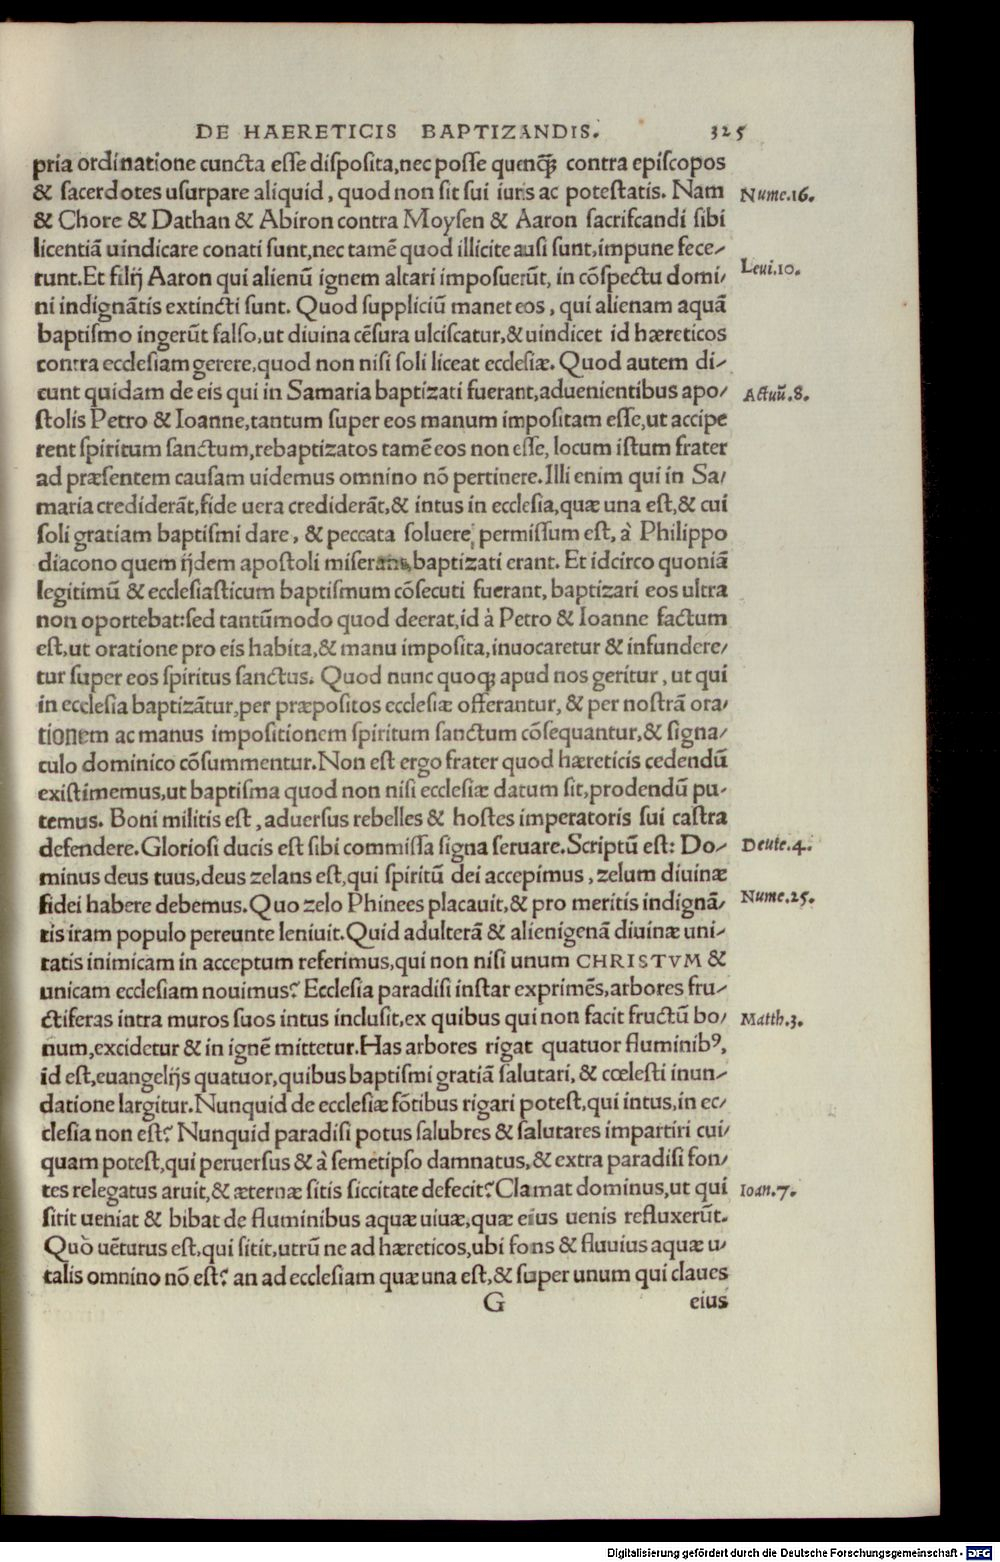 DE HAERETICIS BAPTIZANDIS. 325
pria ordinatione cuncta esse disposita,nec posse quenq̃ꝫ contra episcopos
& sacerdotes usurpare aliquid, quod non sit sui iuris ac potestatis. Nam
Nume.16.
& Chore & Dathan & Abiron contra Moysen & Aaron sacrificandi sibi
licentiã uindicare conati sunt,nec tamẽ quod illicite ausi sunt,impune fece-
Leui.10.
runt.Et filij Aaron qui alienũ ignem altari imposuerũt, in cõspectu domi-
ni indignãtis extincti sunt. Quod suppliciũ manet eos, qui alienam aquã
baptismo ingerũt falso,ut diuina cẽsura ulciscatur,& uindicet id hæreticos
contra ecclesiam gerere,quod non nisi soli liceat ecclesiæ. Quod autem di-
cunt quidam de eis qui in Samaria baptizati fuerant,aduenientibus apo-
Actuũ.8.
stolis Petro & Ioanne,tantum super eos manum impositam esse,ut accipe
rent spiritum sanctum,rebaptizatos tamẽ eos non esse, locum istum frater
ad præsentem causam uidemus omnino nõ pertinere.Illi enim qui in Sa-
maria crediderãt,fide uera crediderãt,& intus in ecclesia,quæ una est,& cui
soli gratiam baptismi dare, & peccata soluere permissum est, à Philippo
diacono quem ijdem apostoli miserant,baptizati erant. Et idcirco quoniã
legitimũ & ecclesiasticum baptismum cõsecuti fuerant, baptizari eos ultra
non oportebat:sed tantũmodo quod deerat,id à Petro & Ioanne factum
est,ut oratione pro eis habita,& manu imposita,inuocaretur & infundere-
tur super eos spiritus sanctus. Quod nunc quoqꝫ apud nos geritur, ut qui
in ecclesia baptizãtur,per præpositos ecclesiæ offerantur, & per nostrã ora-
tionem ac manus impositionem spiritum sanctum cõsequantur,& signa-
culo dominico cõsummentur.Non est ergo frater quod hæreticis cedendũ
existimemus,ut baptisma quod non nisi ecclesiæ datum sit,prodendũ pu-
temus. Boni militis est, aduersus rebelles & hostes imperatoris sui castra
defendere.Gloriosi ducis est sibi commissa signa seruare.Scriptũ est: Do-
Deute.4.
minus deus tuus,deus zelans est,qui spiritũ dei accepimus, zelum diuinæ
fidei habere debemus.Quo zelo Phinees placauit,& pro meritis indignã-
Nume.25.
tis iram populo pereunte leniuit.Quid adulterã & alienigenã diuinæ uni-
tatis inimicam in acceptum referimus,qui non nisi unum CHRISTVM &
unicam ecclesiam nouimus? Ecclesia paradisi instar exprimẽs,arbores fru-
ctiferas intra muros suos intus inclusit,ex quibus qui non facit fructũ bo-
Matth.3.
num,excidetur & in ignẽ mittetur.Has arbores rigat quatuor fluminibꝰ,
id est,euangelijs quatuor,quibus baptismi gratiã salutari, & cœlesti inun-
datione largitur.Nunquid de ecclesiæ fõtibus rigari potest,qui intus,in ec-
clesia non est? Nunquid paradisi potus salubres & salutares impartiri cui-
quam potest,qui peruersus & à semetipso damnatus,& extra paradisi fon-
tes relegatus aruit,& æternæ sitis siccitate defecit?Clamat dominus,ut qui
Ioan.7.
sitit ueniat & bibat de fluminibus aquæ uiuæ,quæ eius uenis refluxerũt.
Quò uẽturus est,qui sitit,utrũ ne ad hæreticos,ubi fons & fluuius aquæ u-
talis omnino nõ est? an ad ecclesiam quæ una est,& super unum qui claues
G eius
Digitalisierung gefördert durch die Deutsche Forschungsgemeinschaft - DFG